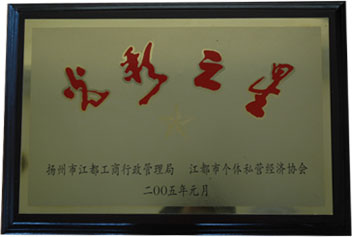 光彩之星
扬州市江都工商行政管理局 江都市个体私营经济协会
二00五年元月